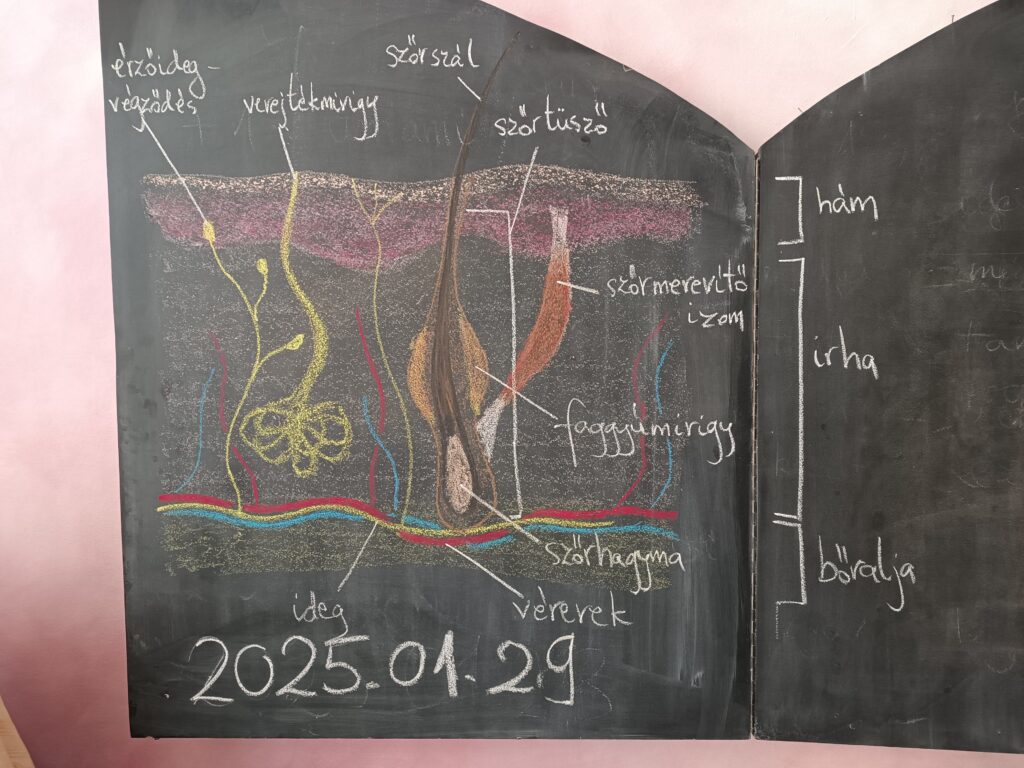 érzőideg-
végződés
verejtékmirigy
szőrszál
szőrtüsző
hám
szőrmerevítő
izom
irha
faggyúmirigy
szőrhagyma
bőralja
ideg
vérerek
2025.01.29